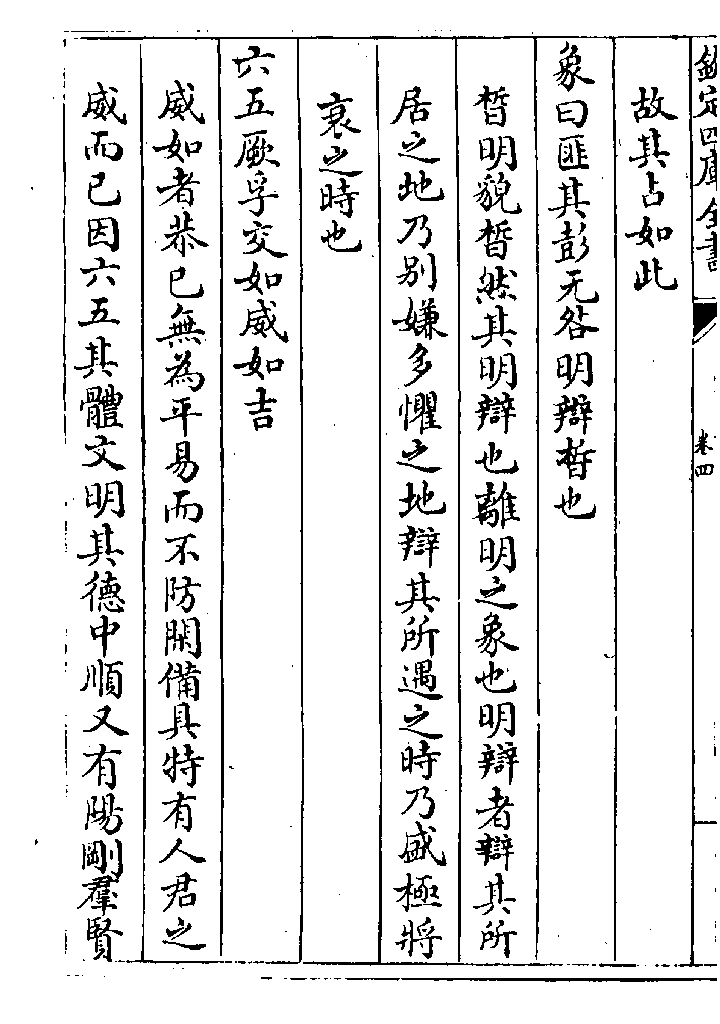 欽定四庫全書
卷四
故其占如此
象曰匪其彭无咎明辯晳也
晳明貌晳然其明辯也離明之象也明辯者辯其所
居之地乃别嫌多懼之地辯其所遇之時乃盛極將
衰之時也
六五厥孚交如威如吉
威如者恭已無為平易而不防閑備具特有人君之
威而已因六五其體文明其德中順又有陽剛羣賢